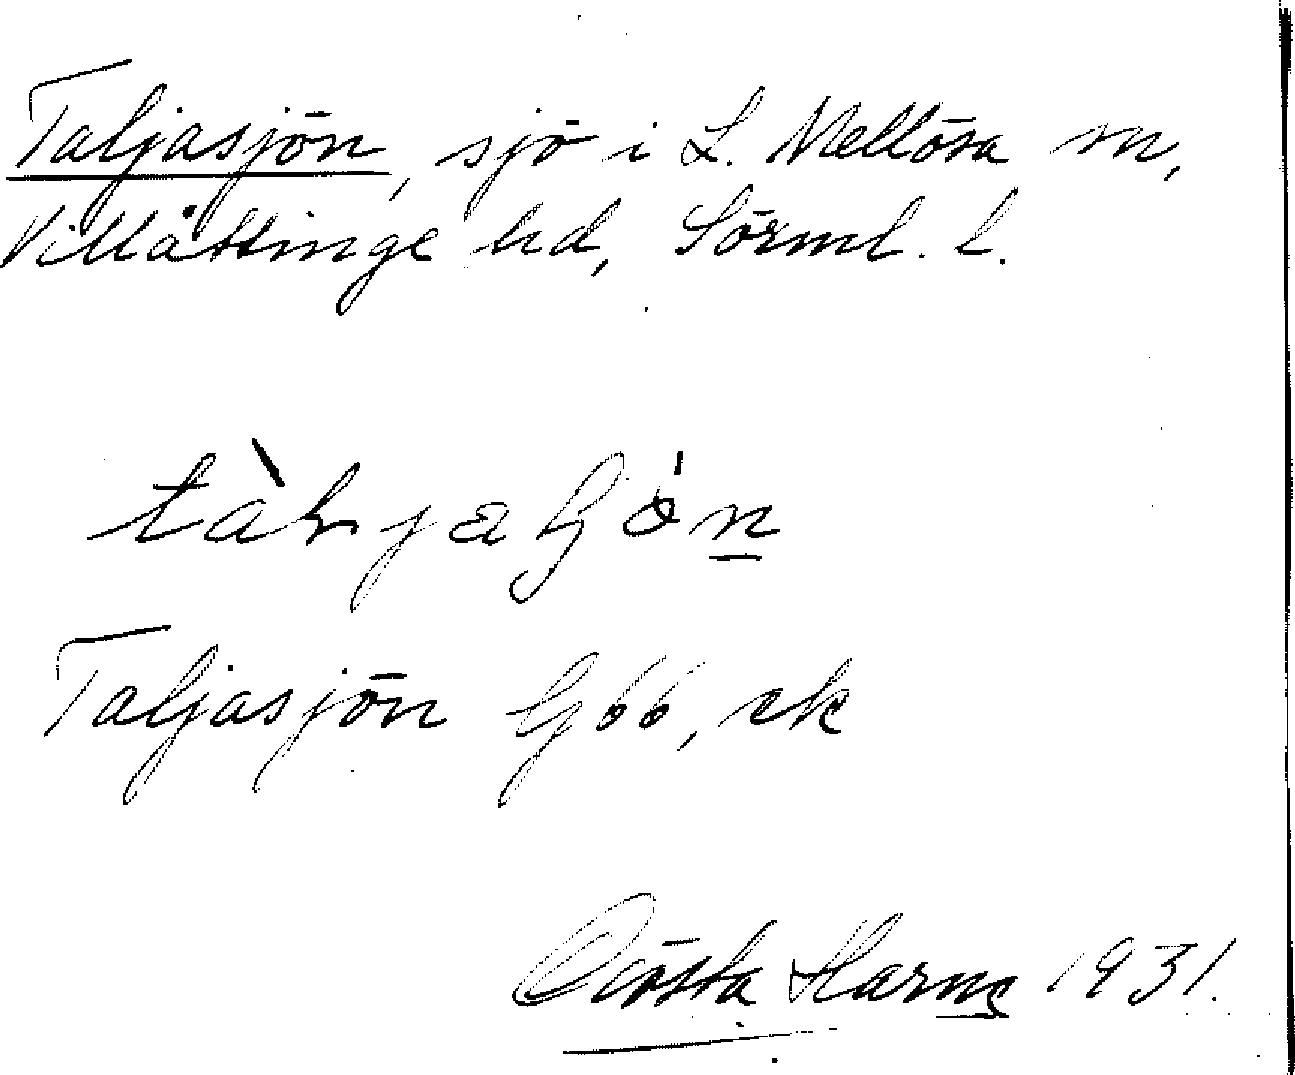 Taljasjön, sjö i L. Mellösa sn,
Villåttinge hd, Sörml. l.
Taljasjön G 66, ek
Gösta Harng 1931.